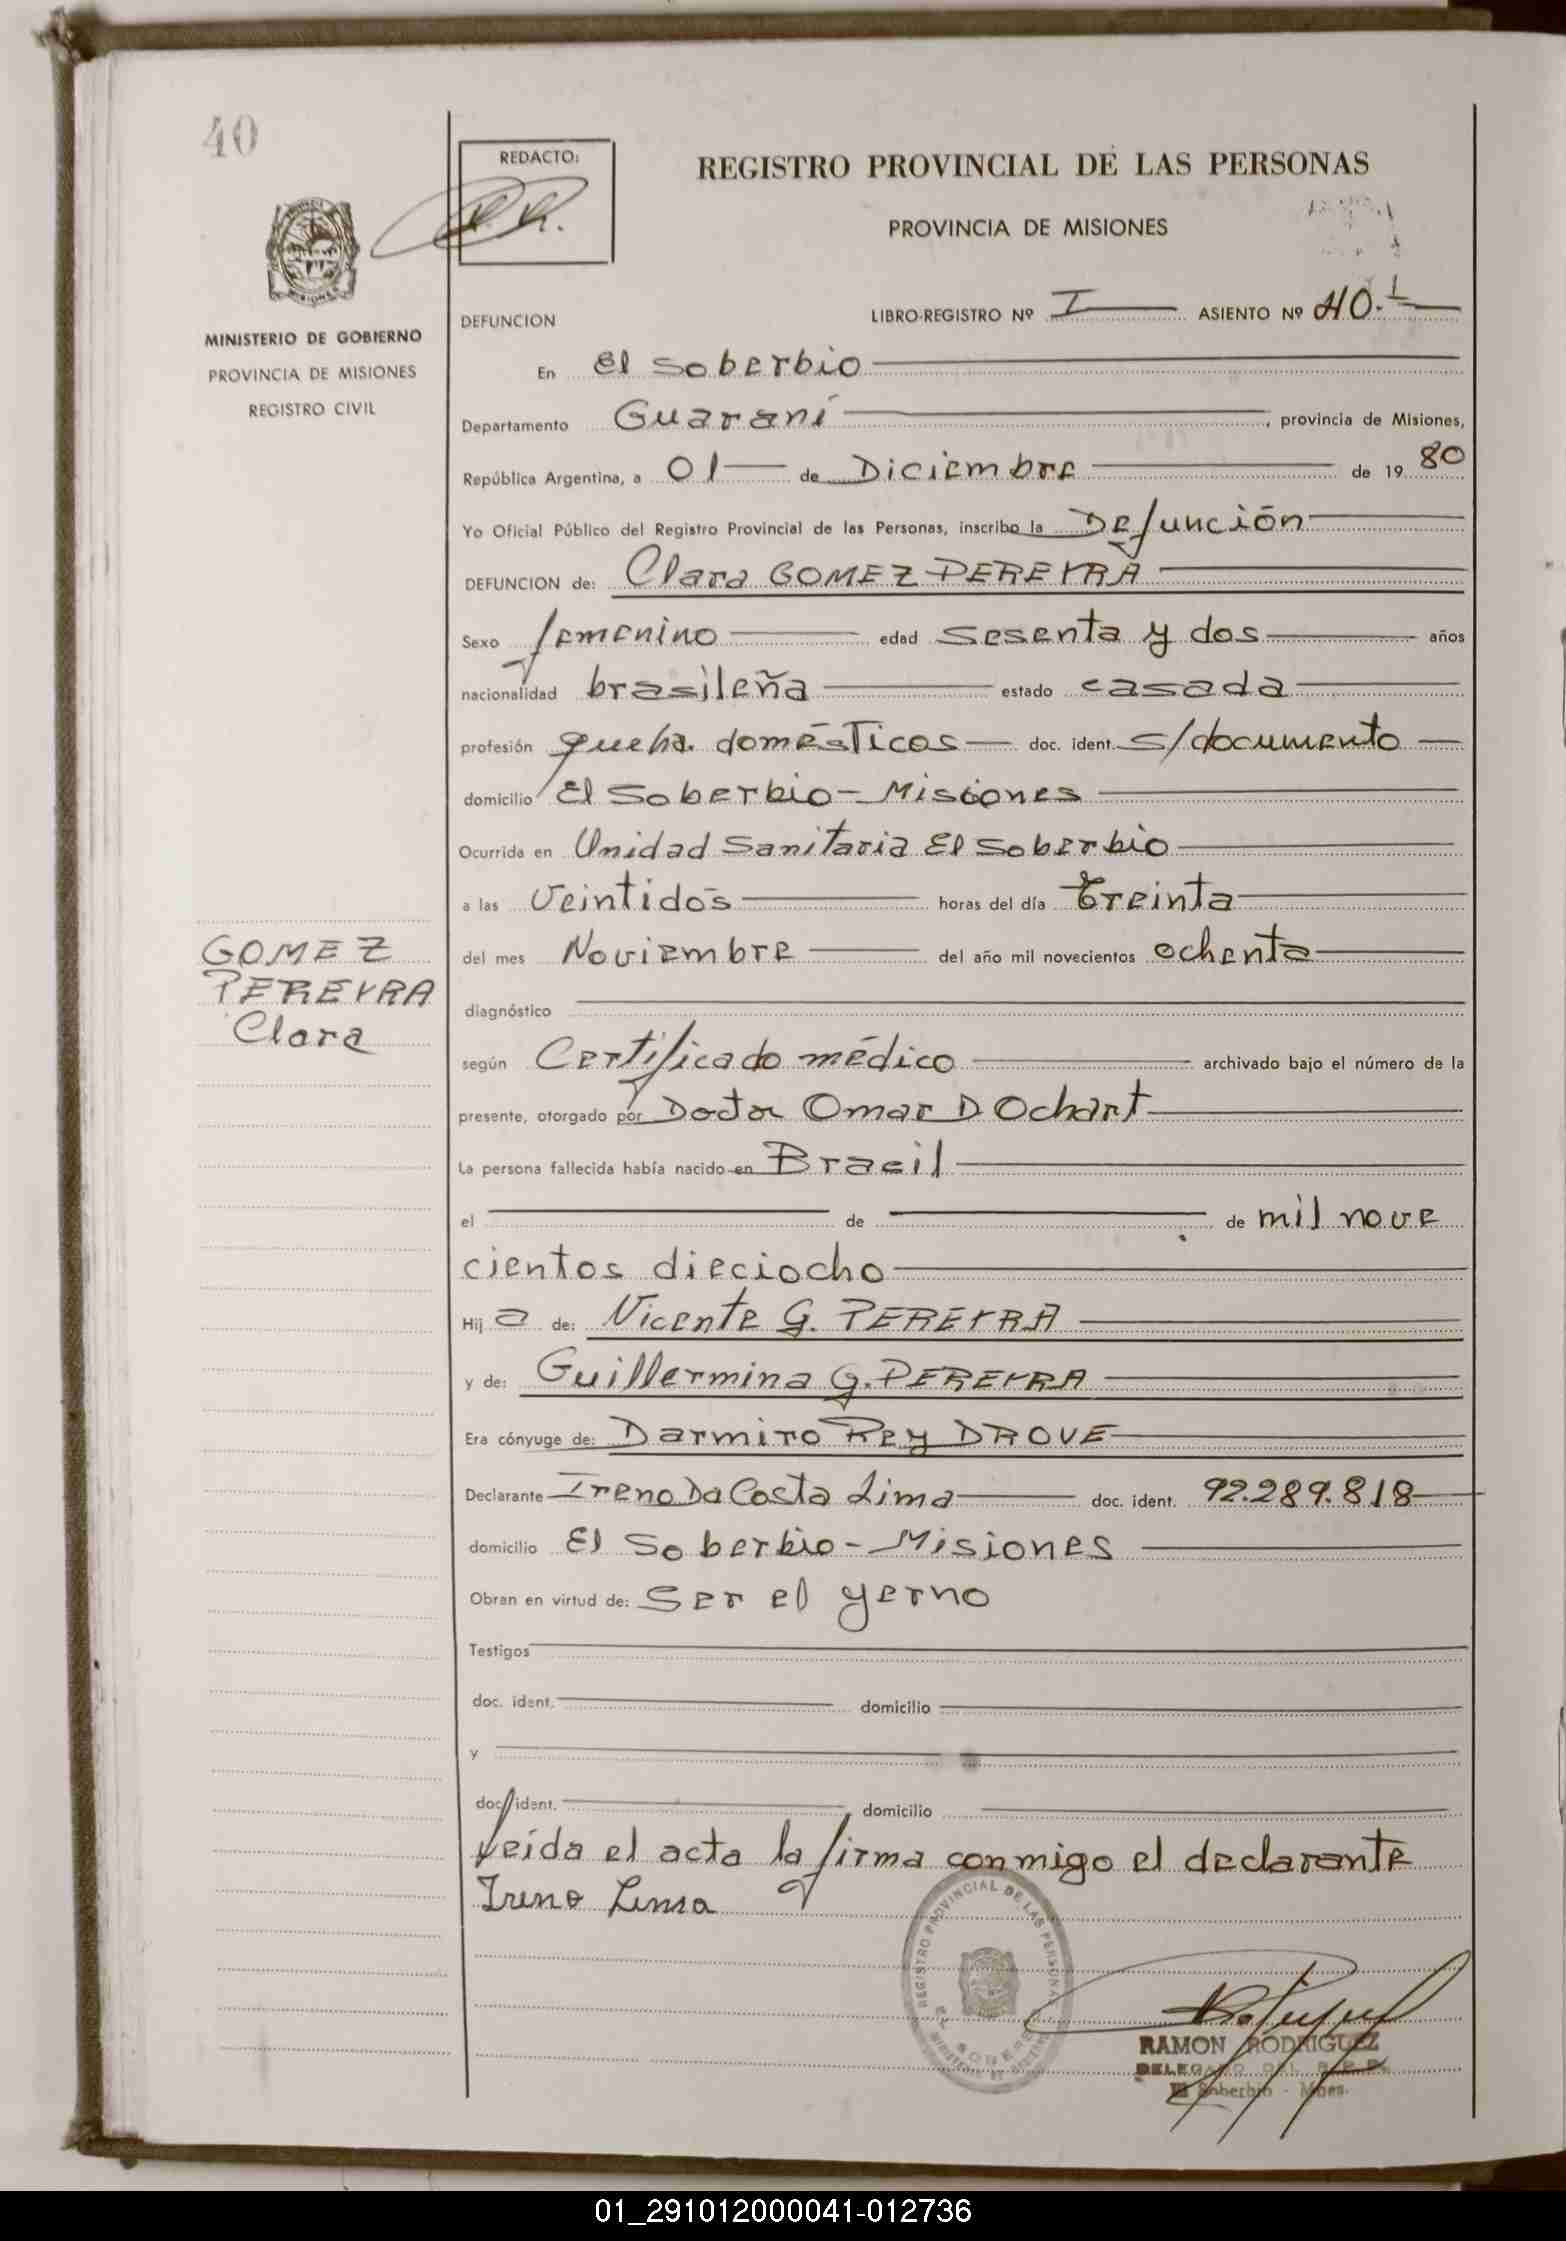 40
REDACTO:
R.R.
REGISTRO PROVINCIAL DE LAS PERSONAS
PROVINCIA DE MISIONES
MINISTERIO DE GOBIERNO
PROVINCIA DE MISIONES
REGISTRO CIVIL
DEFUNCION LIBRO-REGISTRO Nº I ASIENTO Nº 40.-
En El Soberbio
Departamento Guaraní, provincia de Misiones,
República Argentina, a 01 de Diciembre de 19 80
Yo Oficial Público del Registro Provincial de las Personas, inscribo la Defunción
DEFUNCION de: Clara GOMEZ PEREYRA
Sexo femenino edad sesenta y dos años
nacionalidad brasileña estado casada
profesión queha. domésticos doc. ident. s/documento
domicilio El Soberbio - Misiones
Ocurrida en Unidad Sanitaria El Soberbio
a las Veintidós horas del día treinta
del mes Noviembre del año mil novecientos ochenta
GOMEZ
PEREYRA
Clara
diagnóstico
según Certificado médico archivado bajo el número de la
presente, otorgado por Doctor Omar D Ochart
La persona fallecida había nacido en Brasil
el de de mil nove
cientos dieciocho
Hij a de: Vicente G. PEREYRA
y de: Guillermina G. PEREYRA
Era cónyuge de: Darmiro Rey DROVE
Declarante Ireno Da Costa Lima doc. ident. 92.289.818
domicilio El Soberbio - Misiones
Obran en virtud de: Ser el yerno
Testigos
doc. ident. domicilio
y
doc. ident. domicilio
Leída el acta la firma conmigo el declarante
Ireno Lima
REGISTRO PROVINCIAL DE LAS PERSONAS
RAMON RODRIGUEZ
DELEGADO DEL R.P.P.
El Soberbio - Mnes.
01_291012000041-012736